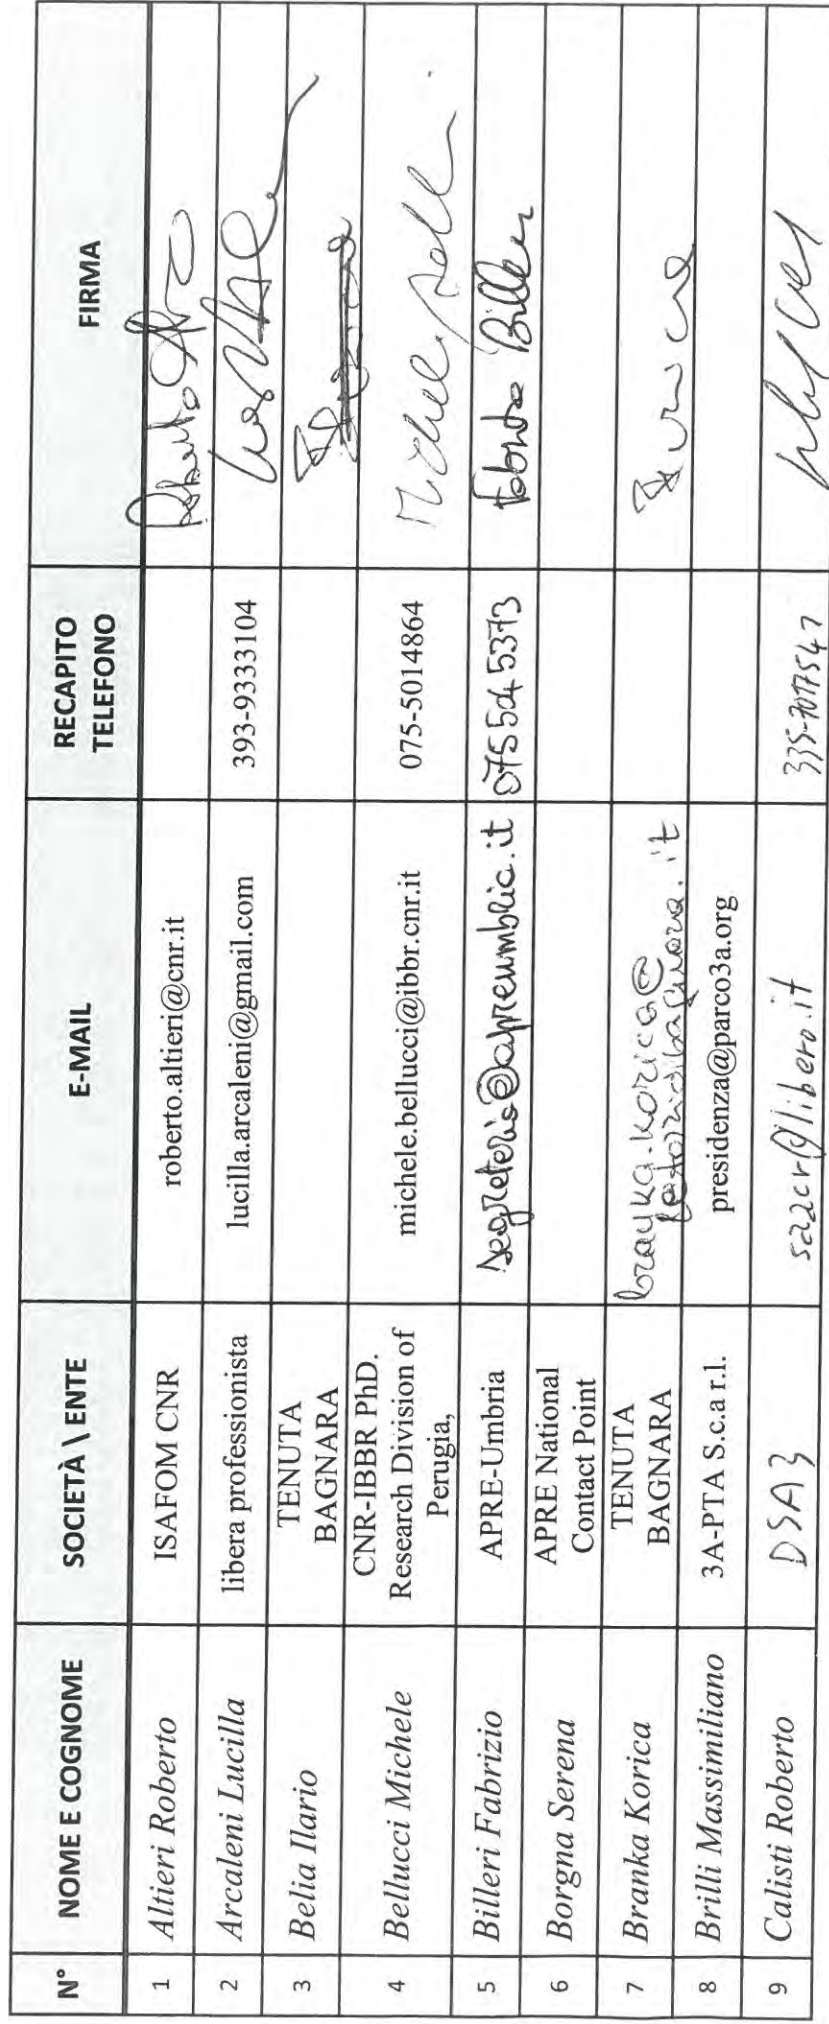 N° NOME E COGNOME SOCIETÀ \ ENTE E-MAIL RECAPITO TELEFONO FIRMA
1 Altieri Roberto ISAFOM CNR roberto.altieri@cnr.it
2 Arcaleni Lucilla libera professionista lucilla.arcaleni@gmail.com 393-9333104
3 Belia Ilario TENUTA BAGNARA
4 Bellucci Michele CNR-IBBR PhD. Research Division of Perugia, michele.bellucci@ibbr.cnr.it 075-5014864
5 Billeri Fabrizio APRE-Umbria segreteria@apreumbria.it
6 Borgna Serena APRE National Contact Point
7 Branka Korica TENUTA BAGNARA
8 Brilli Massimiliano 3A-PTA S.c.a r.l. presidenza@parco3a.org
9 Calisti Roberto DSA3 saacr@libero.it